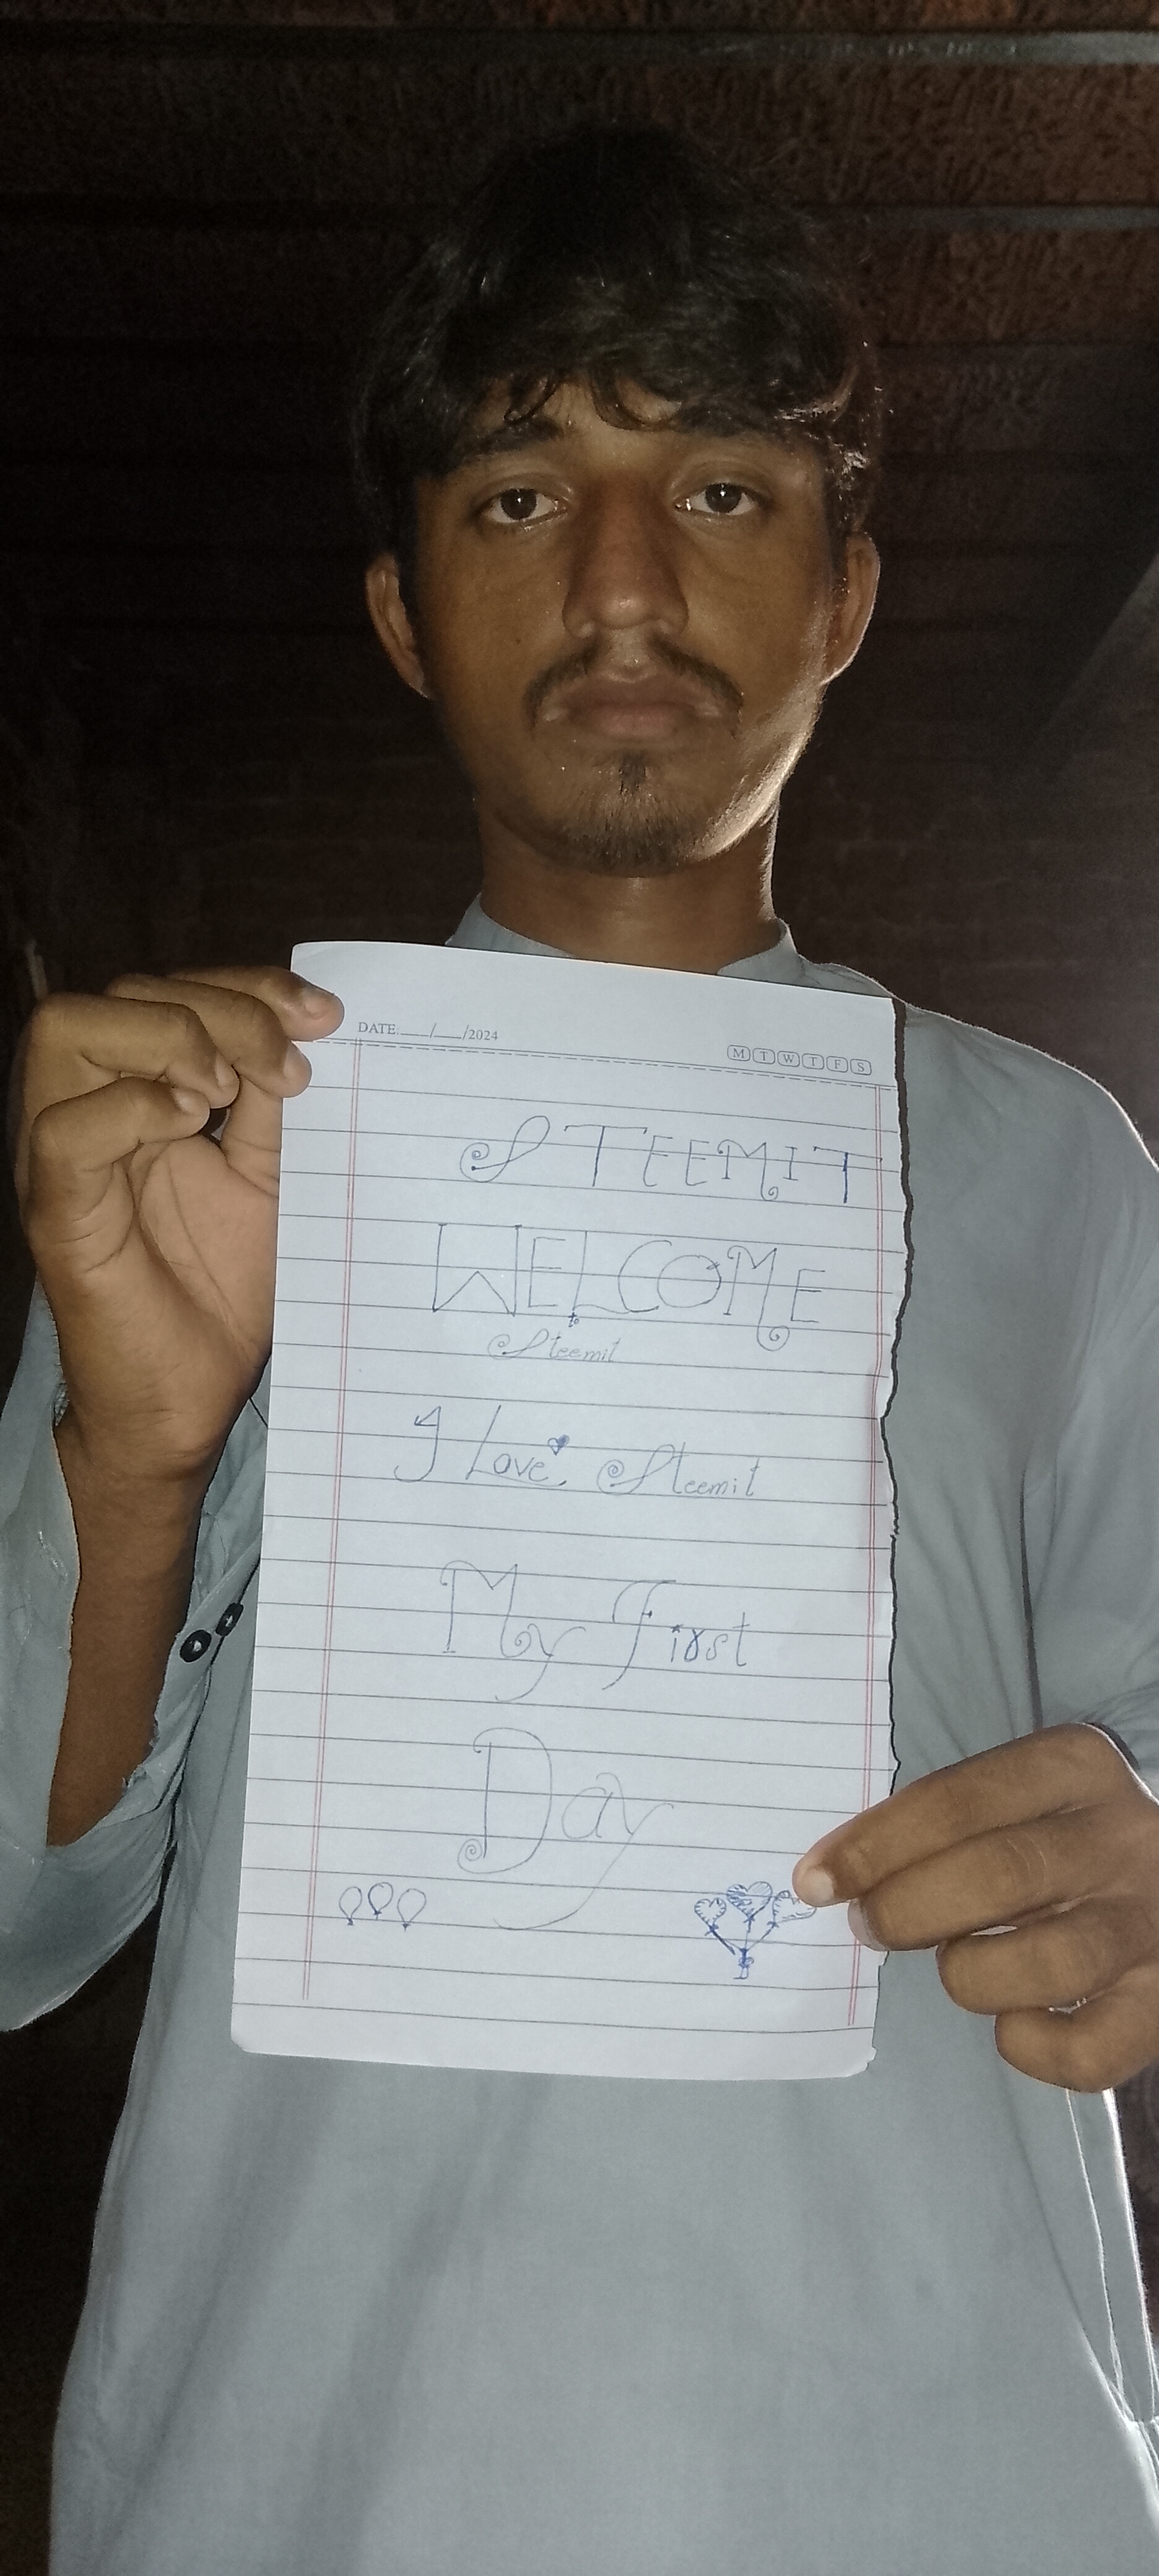 DATE:___/___/2024
M T W T F S
STEEMIT
WELCOME
to
Steemit
I Love Steemit
My First
Day